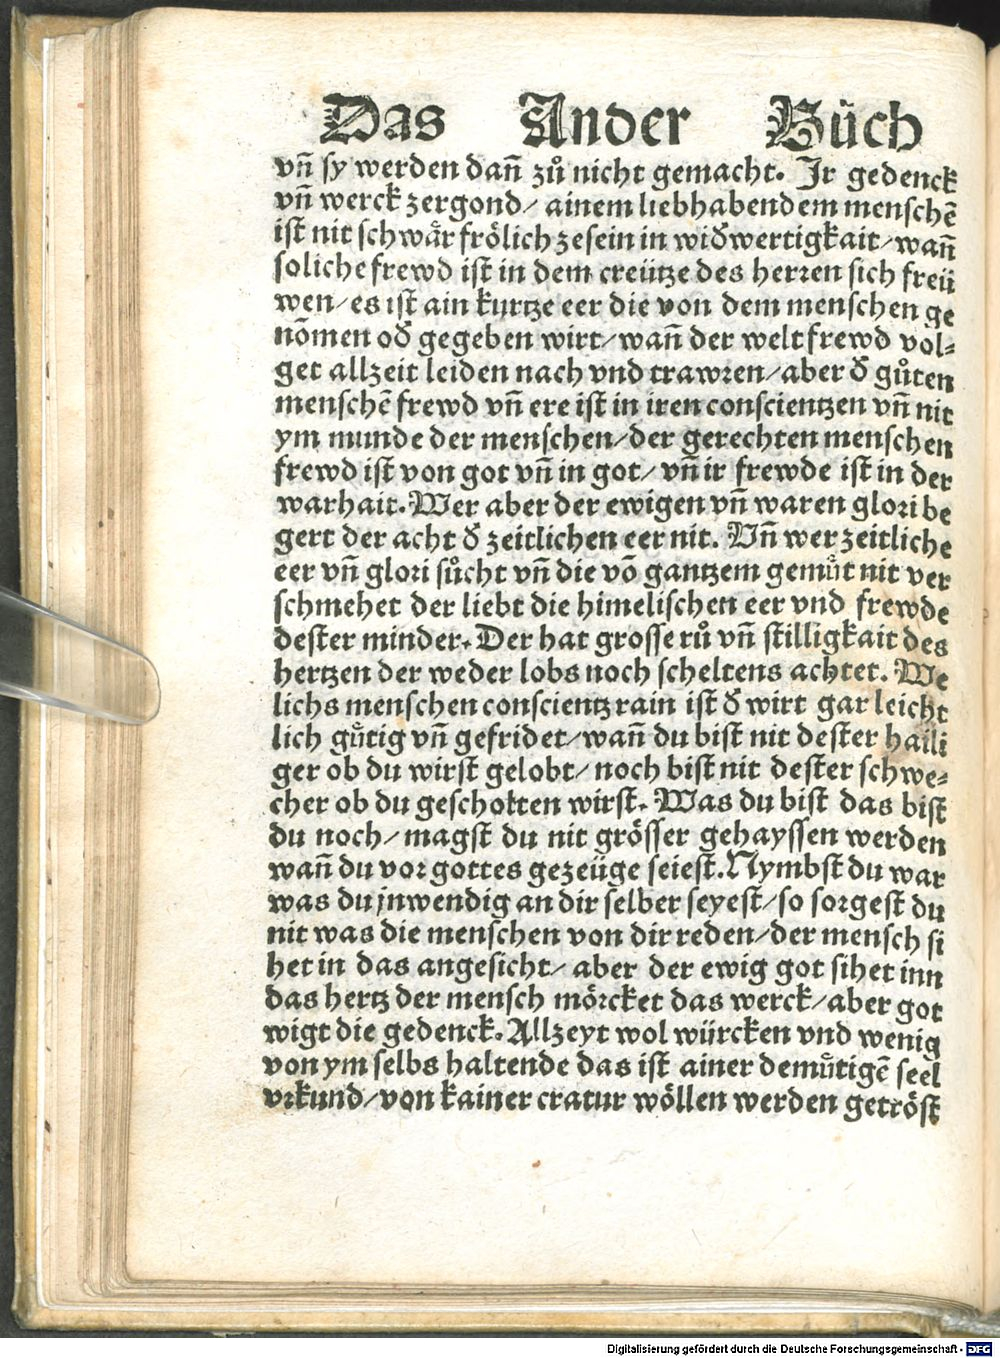 Das Ander Bůch
vñ sy werden dañ zů nicht gemacht. Jr gedenck
vñ werck zergond/ ainem liebhabendem menschē
ist nit schwår frölich zesein in wiđwertigkait/wañ
soliche frewd ist in dem creütze des herren sich freü
wen/es ist ain kurtze eer die von dem menschen ge
nōmen ođ gegeben wirt/wañ der welt frewd vol⸗
get allzeit leiden nach vnd trawren/aber đ gůten
menschē frewd vñ ere ist in iren conscientzen vñ nit
ym munde der menschen/der gerechten menschen
frewd ist von got vñ in got/ vñ ir frewde ist in der
warhait. Wer aber der ewigen vñ waren glori be
gert der acht đ zeitlichen eer nit. Vñ wer zeitliche
eer vñ glori sůcht vñ die vō gantzem gemůt nit ver
schmehet der liebt die himelischen eer vnd frewde
dester minder. Der hat grosse rů vñ stilligkait des
hertzen der weder lobs noch scheltens achtet. We
lichs menschen conscientz rain ist đ wirt gar leicht
lich gůtig vñ gefridet/wañ du bist nit dester haili
ger ob du wirst gelobt/noch bist nit dester schwe⸗
cher ob du gescholten wirst. Was du bist das bist
du noch/magst du nit grösser gehayssen werden
wañ du vor gottes gezeüge seiest. Nymbst du war
was du jnwendig an dir selber seyest/so sorgest du
nit was die menschen von dir reden/der mensch si
het in das angesicht/ aber der ewig got sihet inn
das hertz der mensch mörcket das werck/aber got
wigt die gedenck. Allzeyt wol würcken vnd wenig
von ym selbs haltende das ist ainer demůtigē seel
vrkund/von kainer cratur wöllen werden getröst
Digitalisierung gefördert durch die Deutsche Forschungsgemeinschaft - DFG